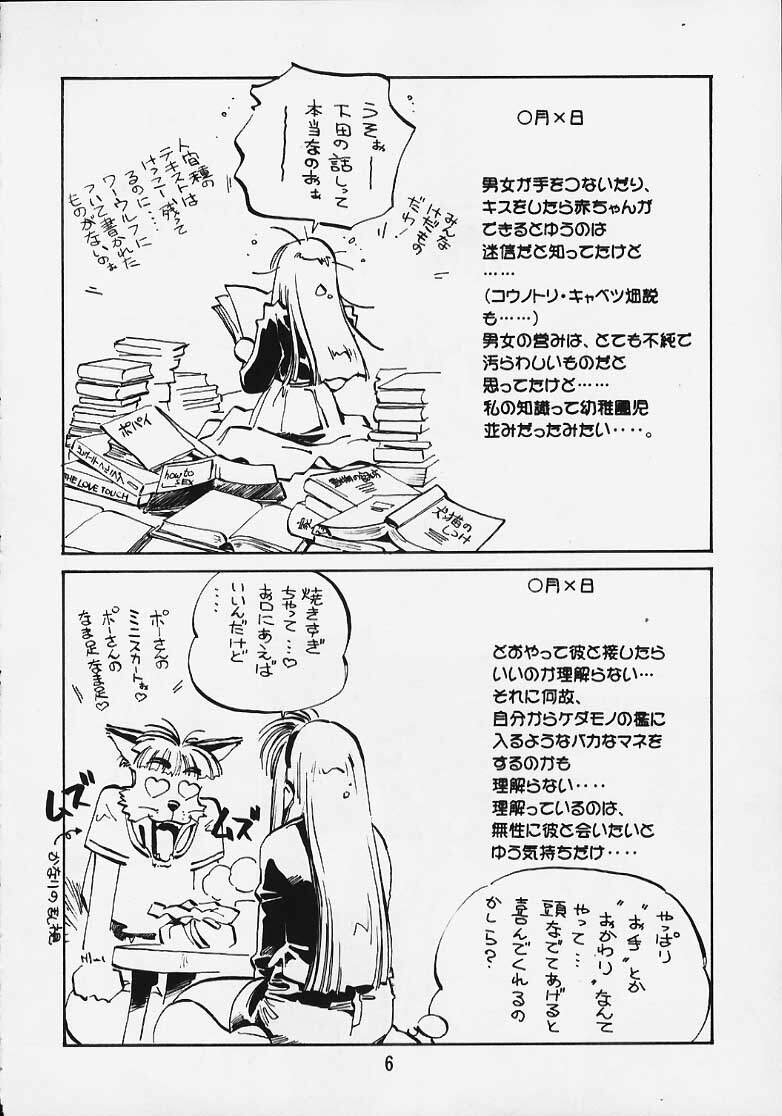 〇月×日
男女が手をつないだり、
キスをしたら赤ちゃんが
できるとゆうのは
迷信だと知ってたけど
……
（コウノトリ・キャベツ畑説
も……）
男女の営みは、とても不純で
汚らわしいものだと
思ってたけど……
私の知識って幼稚園児
並みだったみたい‥‥。
うそぉ──
下田の話しって
本当なのぉぉ
──
みんな
けだもの
だわ！
人間種の
テキストは
けっこー残って
るのに‥‥
ワーウルフに
ついて書かれた
ものがないのぉ
ポパイ
how to
SEX
THE LOVE TOUCH
犬猫の
しつけ
〇月×日
どおやって彼と接したら
いいのか理解らない…
それに何故、
自分からケダモノの檻に
入るようなバカなマネを
するのかも
理解らない‥‥
理解っているのは、
無性に彼と会いたいと
ゆう気持ちだけ‥‥
焼きすぎ
ちゃって…♡
お口にあえば
いいんだけど
‥‥
ポーさんの
ミニスカートぉ♡
ポーさんの
なま足なま足♡
ムズ
ムズ
かなりの乱視
やっぱり
“お手”とか
“おかわり”なんて
やって…
頭なでてあげると
喜んでくれるの
かしら？
6